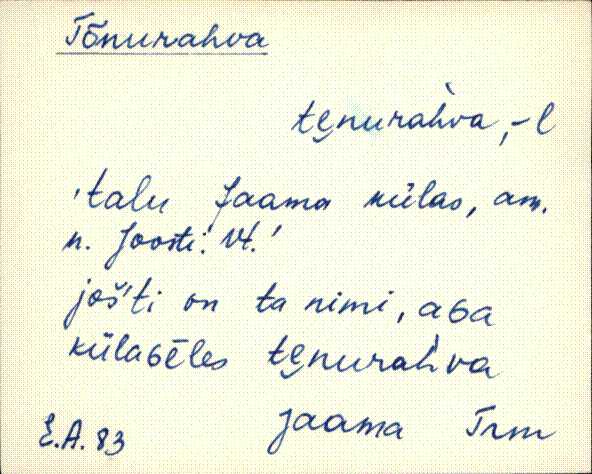 Tõnurahva
te̮nurah̀va, -l
'talu Jaama külas, am.
n. Joosti.' Vt.'
još́ti on ta nimi, aƃa
külaƃēles te̮nurah̀va
Jaama Trm
E.A. 83